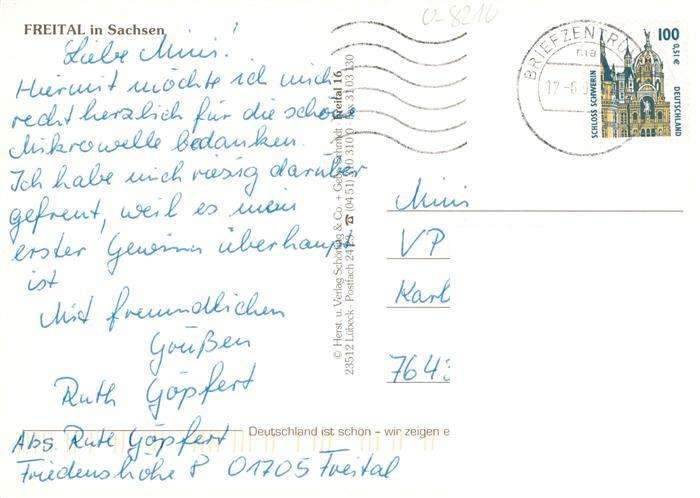 FREITAL in Sachsen
Liebe Minis!
Hiermit möchte ich mich
recht herzlich für die schöne
Mikrowelle bedanken.
Ich habe mich riesig darüber
gefreut, weil es mein
erster Gewinn überhaupt
ist
Mit freundlichen
Grüßen
Ruth Göpfert
Abs. Ruth Göpfert
Friedenshöhe 8 01705 Freital
Deutschland ist schön – wir zeigen e
© Herst. u. Verlag Schöning & Co. + Gebr. Schmidt Freital 16
23512 Lübeck · Postfach 24
0-8210
BRIEFZENTRUM
100
0,51€
DEUTSCHLAND
SCHLOSS SCHWERIN
Minis
VP
Karl
7643